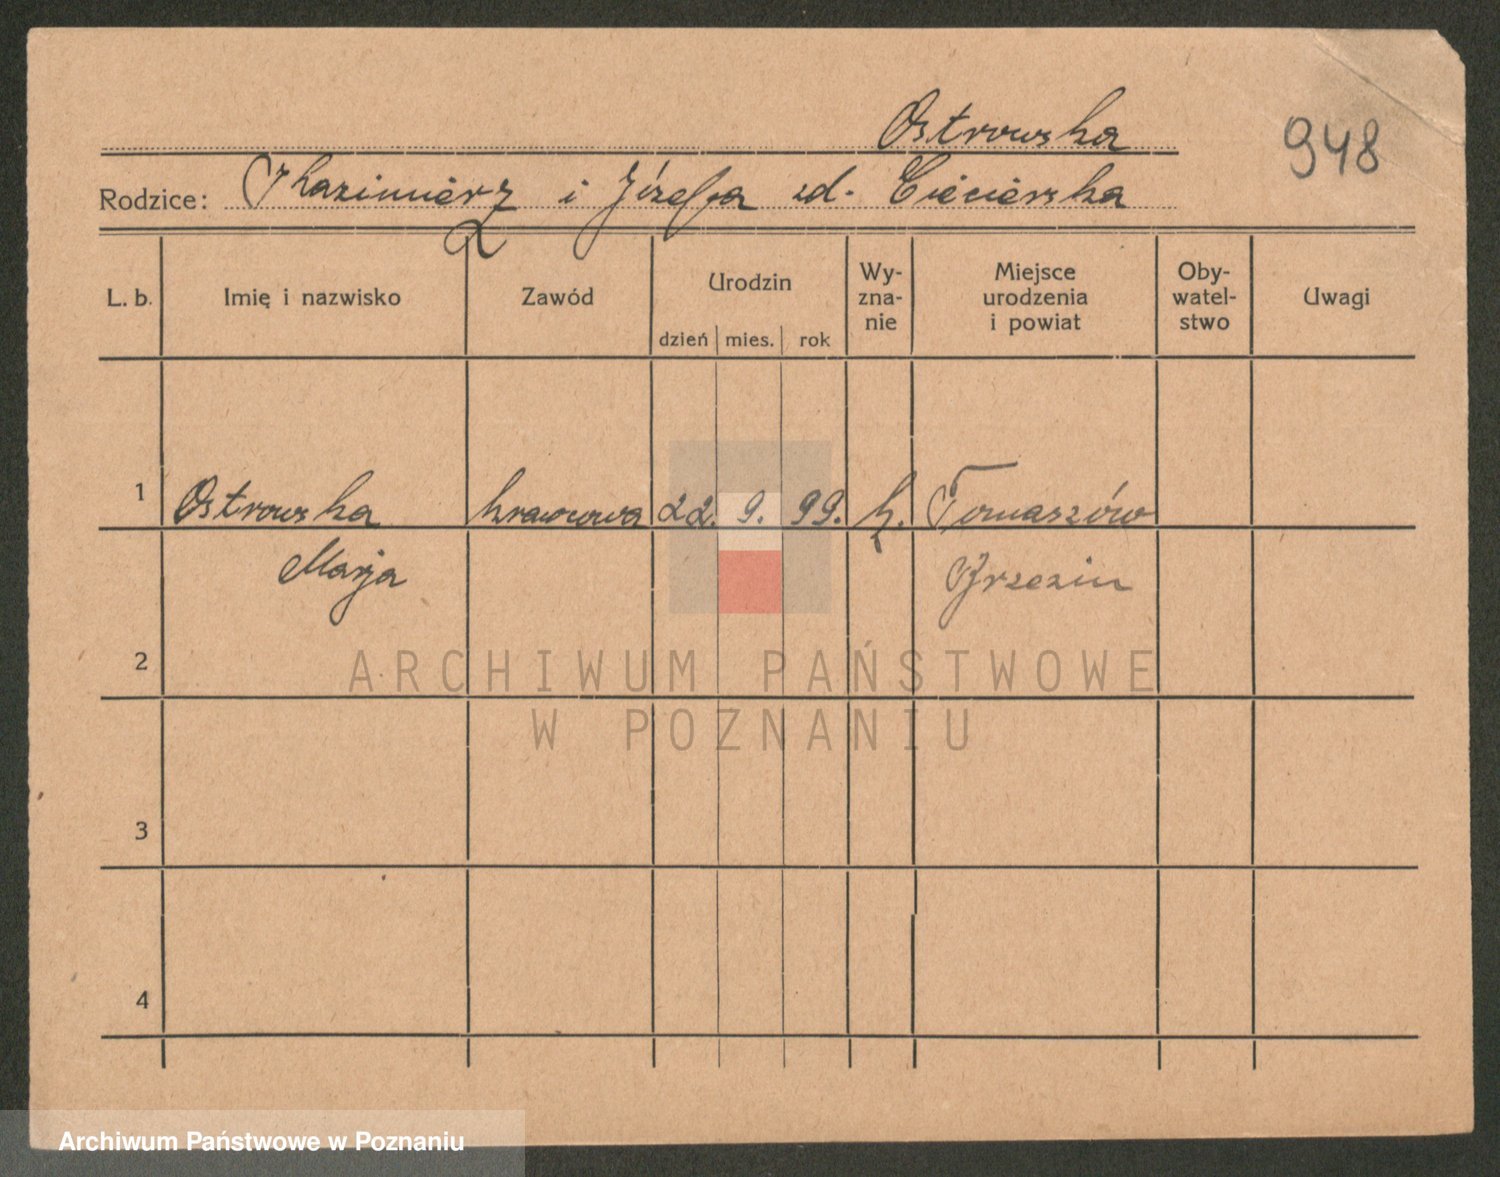 Ostrowska
948
Rodzice: Kazimierz i Józefa zd. Ciecierska
L. b.
Imię i nazwisko
Zawód
Urodzin
dzień mies. rok
Wy-
zna-
nie
Miejsce
urodzenia
i powiat
Oby-
watel-
stwo
Uwagi
1 Ostrowska krawcowa 22. 9. 99. k. Tomaszów
Marja Brzezin
2
ARCHIWUM PAŃSTWOWE
W POZNANIU
3
4
Archiwum Państwowe w Poznaniu